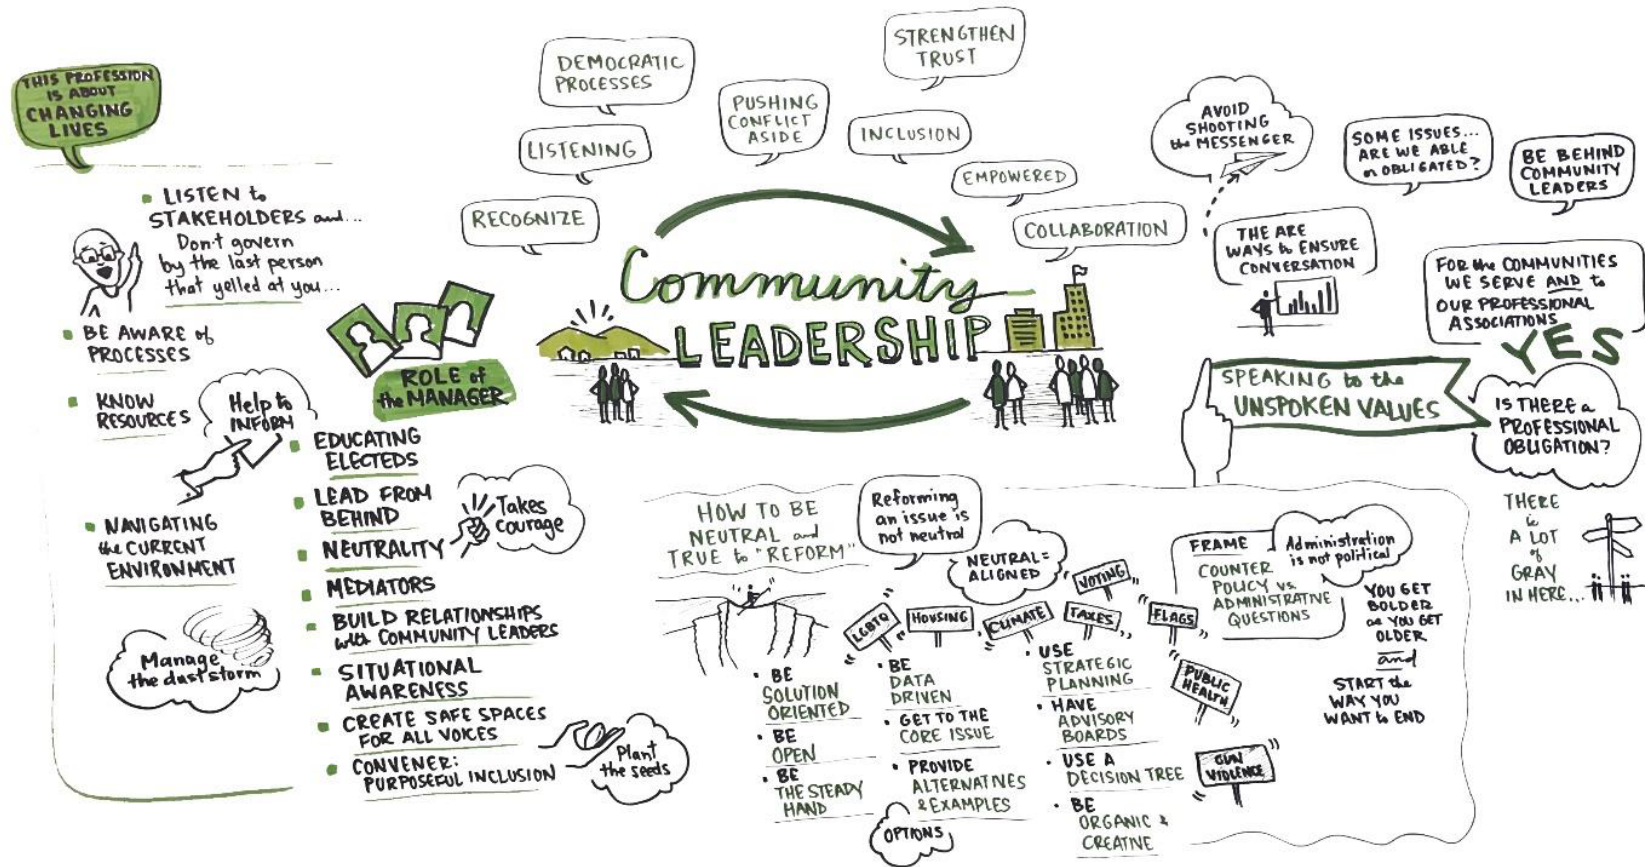 THIS PROFESSION
IS ABOUT
CHANGING
LIVES
LISTEN to
STAKEHOLDERS and...
Don't govern
by the last person
that yelled at you...
BE AWARE of
PROCESSES
KNOW
RESOURCES
Help to
INFORM
NAVIGATING
the CURRENT
ENVIRONMENT
Manage
the dust storm
ROLE of
the MANAGER
EDUCATING
ELECTEDS
LEAD FROM
BEHIND
NEUTRALITY
Takes
courage
MEDIATORS
BUILD RELATIONSHIPS
with COMMUNITY LEADERS
SITUATIONAL
AWARENESS
CREATE SAFE SPACES
FOR ALL VOICES
CONVENER:
PURPOSEFUL INCLUSION
Plant
the seeds
RECOGNIZE
LISTENING
DEMOCRATIC
PROCESSES
PUSHING
CONFLICT
ASIDE
STRENGTHEN
TRUST
INCLUSION
EMPOWERED
COLLABORATION
Community
LEADERSHIP
AVOID
SHOOTING
the MESSENGER
THE ARE
WAYS to ENSURE
CONVERSATION
SOME ISSUES...
ARE WE ABLE
or OBLIGATED?
BE BEHIND
COMMUNITY
LEADERS
FOR the COMMUNITIES
WE SERVE AND to
OUR PROFESSIONAL
ASSOCIATIONS
YES
SPEAKING to the
UNSPOKEN VALUES
IS THERE a
PROFESSIONAL
OBLIGATION?
THERE
is
A LOT
of
GRAY
IN HERE...
HOW TO BE
NEUTRAL and
TRUE to "REFORM"
Reforming
an issue is
not neutral
NEUTRAL =
ALIGNED
LGBTQ
HOUSING
CLIMATE
VOTING
TAXES
FLAGS
PUBLIC
HEALTH
GUN
VIOLENCE
BE
SOLUTION
ORIENTED
BE
OPEN
BE
THE STEADY
HAND
BE
DATA
DRIVEN
GET TO THE
CORE ISSUE
PROVIDE
ALTERNATIVES
& EXAMPLES
OPTIONS
USE
STRATEGIC
PLANNING
HAVE
ADVISORY
BOARDS
USE A
DECISION TREE
BE
ORGANIC &
CREATIVE
FRAME
COUNTER
POLICY vs.
ADMINISTRATIVE
QUESTIONS
Administration
is not political
YOU GET
BOLDER
as YOU GET
OLDER
and
START the
WAY YOU
WANT to END